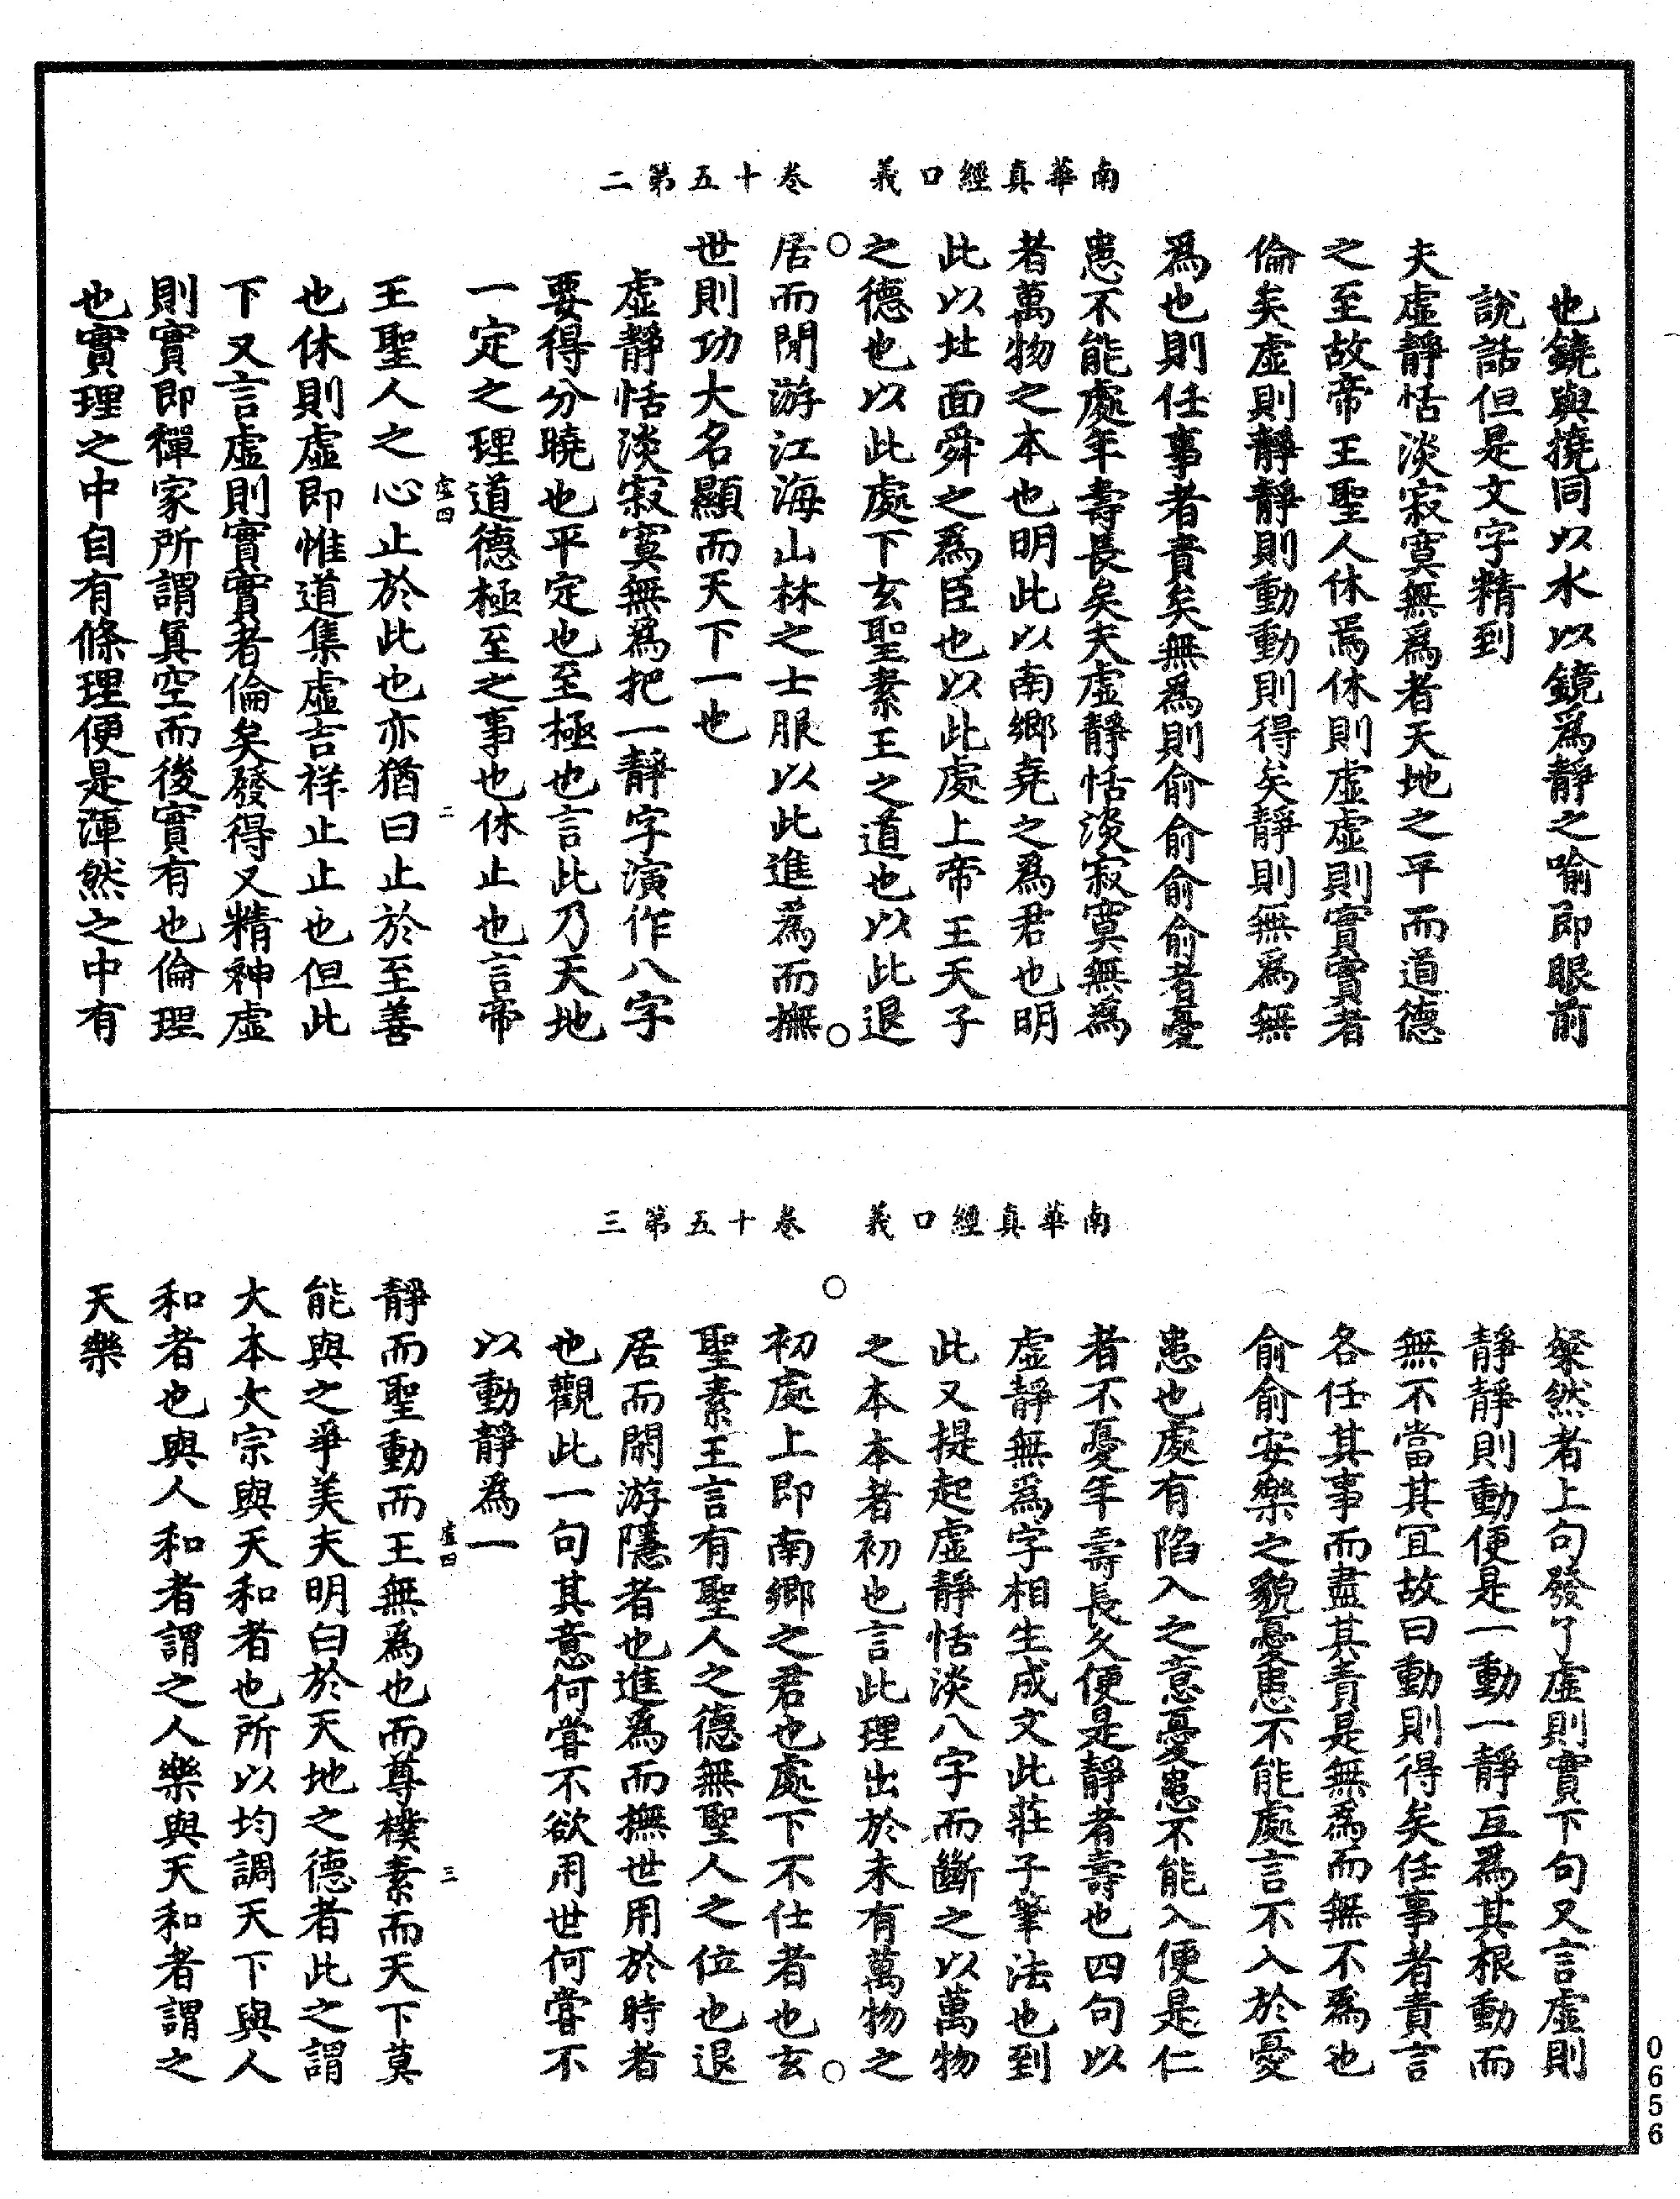 南華真經口義　卷十五第二
也鐃與撓同以水以鏡爲靜之喻即眼前
說話但是文字精到
夫虛靜恬淡寂寞無爲者天地之平而道德
之至故帝王聖人休焉休則虛虛則實實者
倫矣虛則靜靜則動動則得矣靜則無爲無
爲也則任事者責矣無爲則俞俞俞俞者憂
患不能處年壽長矣夫虛靜恬淡寂寞無爲
者萬物之本也明此以南鄉堯之爲君也明
此以北面舜之爲臣也以此處上帝王天子
之德也以此處下玄聖素王之道也以此退
居而閒游江海山林之士服以此進爲而撫
世則功大名顯而天下一也
虛靜恬淡寂寞無爲把一靜字演作八字
要得分曉也平定也至極也言此乃天地
一定之理道德極至之事也休止也言帝
虛四　二
王聖人之心止於此也亦猶曰止於至善
也休則虛即惟道集虛吉祥止止也但此
下又言虛則實實者倫矣發得又精神虛
則實即禪家所謂真空而後實有也倫理
也實理之中自有條理便是渾然之中有
南華真經口義　卷十五第三
粲然者上句發了虛則實下句又言虛則
靜靜則動便是一動一靜互爲其根動而
無不當其宜故曰動則得矣任事者責言
各任其事而盡其責是無爲而無不爲也
俞俞安樂之貌憂患不能處言不入於憂
患也處有陷入之意憂患不能入便是仁
者不憂年壽長久便是靜者壽也四句以
虛靜無爲字相生成文此莊子筆法也到
此又提起虛靜恬淡八字而斷之以萬物
之本本者初也言此理出於未有萬物之
初處上即南鄉之君也處下不仕者也玄
聖素王言有聖人之德無聖人之位也退
居而閒游隱者也進爲而撫世用於時者
也觀此一句其意何嘗不欲用世何嘗不
以動靜爲一
虛四　三
靜而聖動而王無爲也而尊樸素而天下莫
能與之爭美夫明白於天地之德者此之謂
大本大宗與天和者也所以均調天下與人
和者也與人和者謂之人樂與天和者謂之
天樂
0656